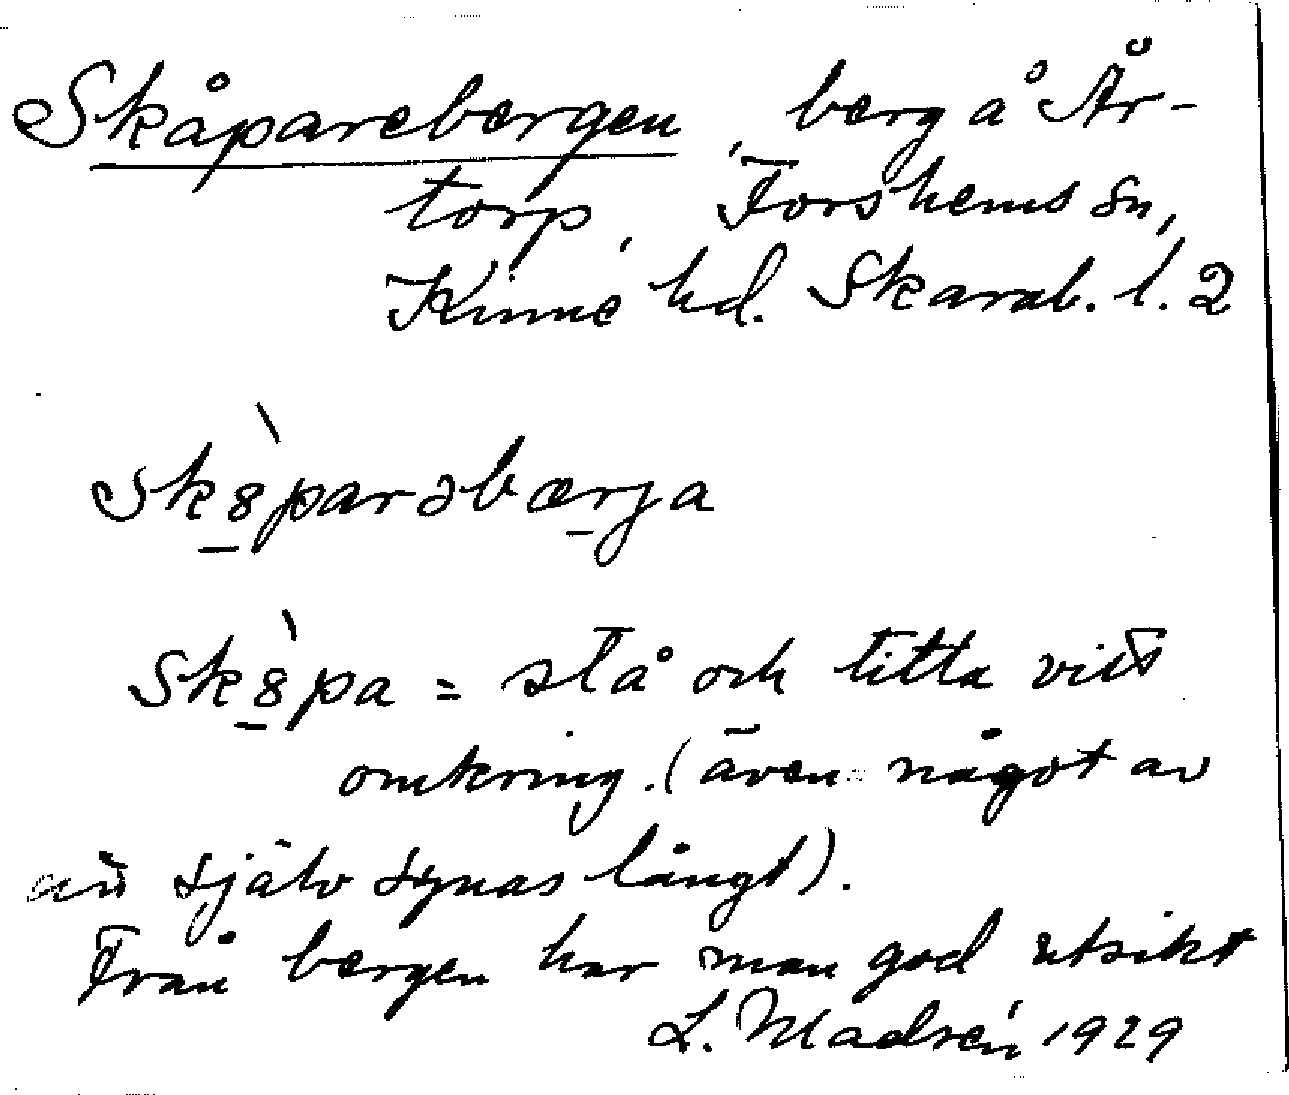 Skåparebergen, berg å År-
torp, Forshems sn,
Kinne hd. Skarab. l. 2
sk8̱̀parəbæ̱rja
sk8̱̀pa = stå och titta vitt
omkring. (även något av
att själv synas långt).
Från bergen har man god utsikt
L. Madsén 1929